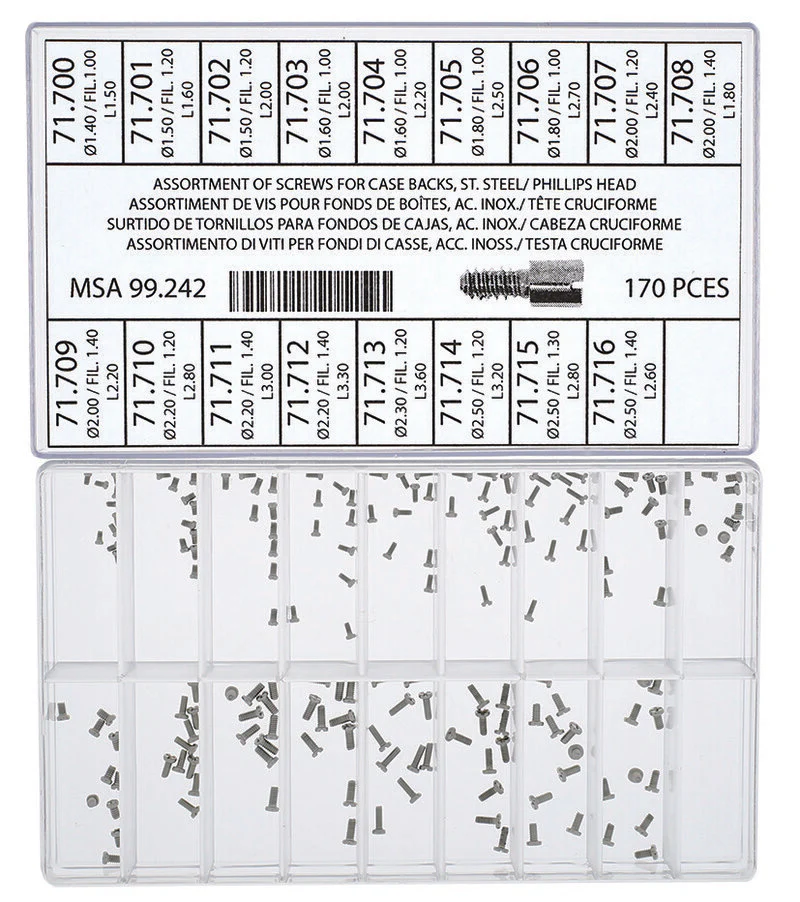 71.700
Ø1.40 / FIL.1.00
L1.50
71.701
Ø1.50 / FIL. 1.20
L1.60
71.702
Ø1.50 / FIL. 1.20
L2.00
71.703
Ø1.60 / FIL. 1.00
L2.00
71.704
Ø1.60 / FIL. 1.00
L2.20
71.705
Ø1.80 / FIL. 1.00
L2.50
71.706
Ø1.80 / FIL. 1.00
L2.70
71.707
Ø2.00 / FIL. 1.20
L2.40
71.708
Ø2.00 / FIL. 1.40
L1.80
ASSORTMENT OF SCREWS FOR CASE BACKS, ST. STEEL/ PHILLIPS HEAD
ASSORTIMENT DE VIS POUR FONDS DE BOÎTES, AC. INOX./ TÊTE CRUCIFORME
SURTIDO DE TORNILLOS PARA FONDOS DE CAJAS, AC. INOX./ CABEZA CRUCIFORME
ASSORTIMENTO DI VITI PER FONDI DI CASSE, ACC. INOSS./ TESTA CRUCIFORME
MSA 99.242
170 PCES
71.709
Ø2.00 / FIL. 1.40
L2.20
71.710
Ø2.20 / FIL. 1.20
L2.80
71.711
Ø2.20 / FIL. 1.40
L3.00
71.712
Ø2.20 / FIL. 1.40
L3.30
71.713
Ø2.30 / FIL. 1.20
L3.60
71.714
Ø2.50 / FIL. 1.20
L3.20
71.715
Ø2.50 / FIL. 1.30
L2.80
71.716
Ø2.50 / FIL. 1.40
L2.60